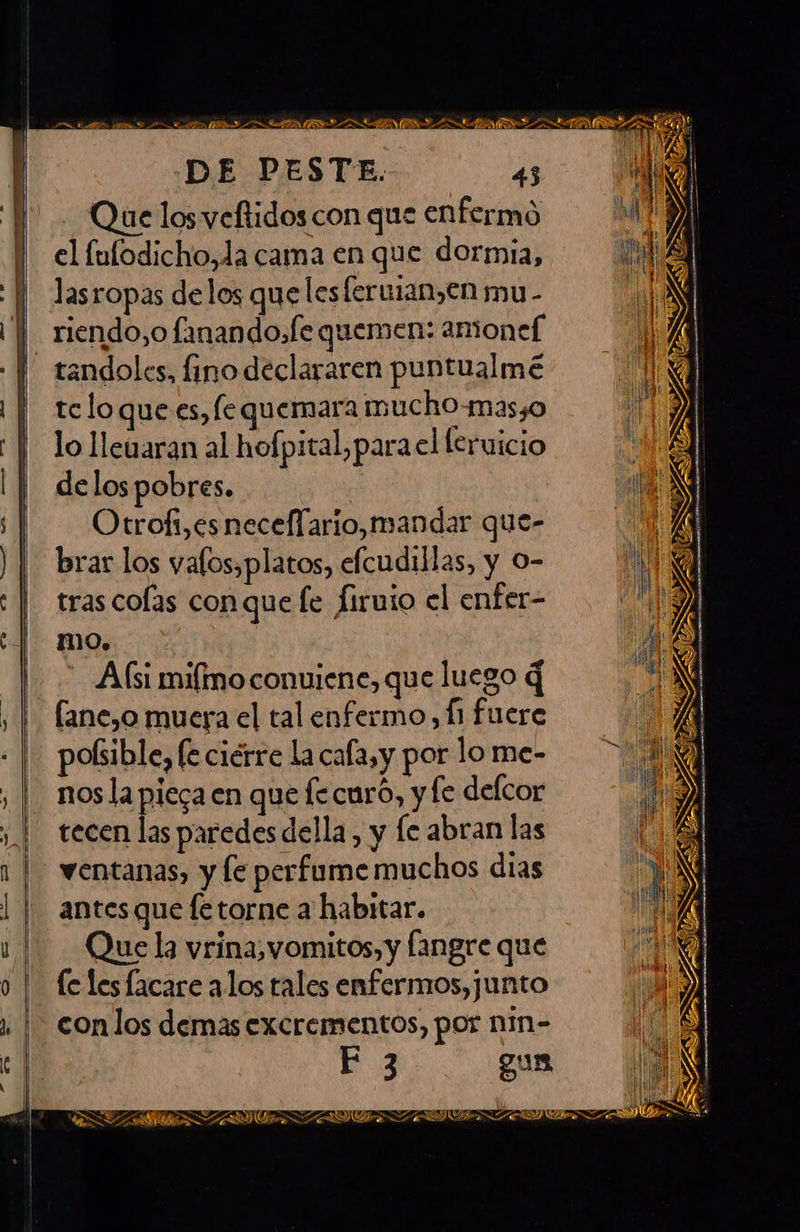 DE PESTE. 43
Que los veſtidos con que enfermò
el ſuſodicho, la cama en que dormia,
las ropas de los que les ſeruian, en mu-
riendo, o ſanando, ſe quemen: amoneſ
tandoles, ſino declararen puntualmẽ
te lo que es, ſe quemara mucho mas, o
lo lleuaran al hoſpital, para el ſeruicio
de los pobres.
Otroſi, es neceſſario, mandar que-
brar los vaſos, platos, eſcudillas, y o-
tras coſas con que ſe ſiruio el enfer-
mo.
Aſsi miſmo conuiene, que luego q̃
ſane, o muera el tal enfermo, ſi fuere
poſsible, ſe cierre la caſa, y por lo me-
nos la pieça en que ſe curò, y ſe deſcor
tecen las paredes della, y ſe abran las
ventanas, y ſe perfume muchos dias
antes que ſe torne a habitar.
Que la vrina, vomitos, y ſangre que
ſe les ſacare a los tales enfermos, junto
con los demas excrementos, por nin-
F 3 gun